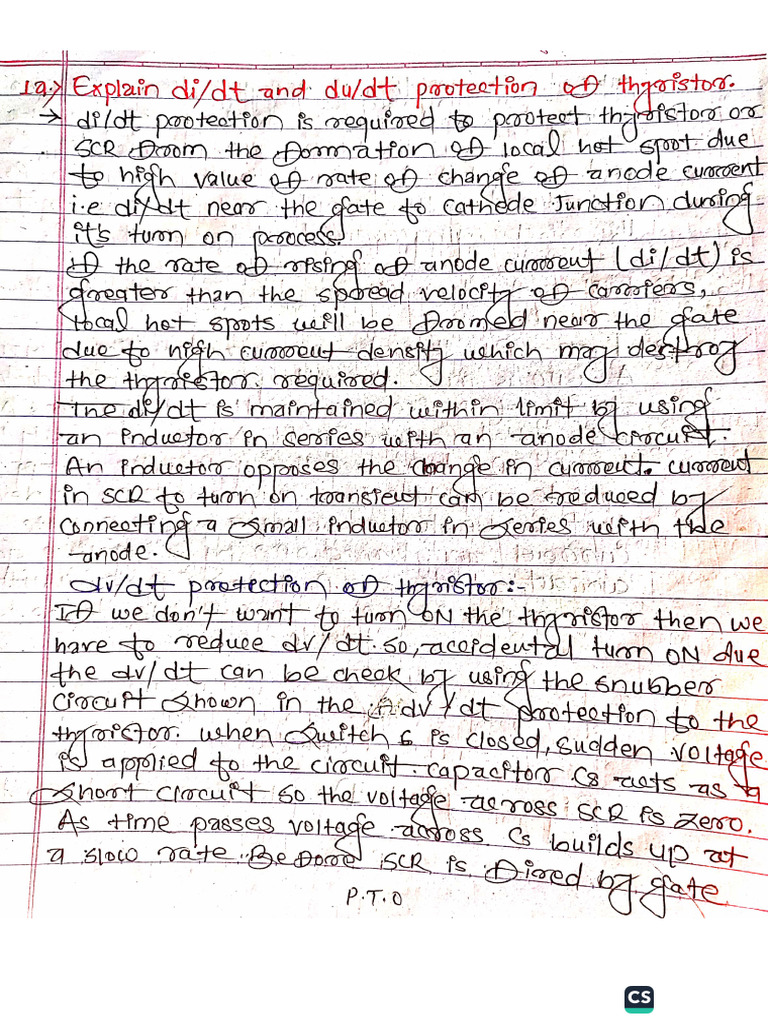 1a.) Explain di/dt and du/dt protection of thyristor.
→ di/dt protection is required to protect thyristor or
SCR from the formation of local hot spot due
to high value of rate of change of anode current
i.e di/dt near the gate to cathode Junction during
it's turn on process.
If the rate of rising of anode current (di/dt) is
greater than the spread velocity of carriers,
local hot spots will be formed near the gate
due to high current density which may destroy
the thyristor. required.
The di/dt is maintained within limit by using
an inductor in series with an anode circuit.
An inductor opposes the change in current. current
in SCR to turn on transient can be reduced by
Connecting a Small inductor in Series with the
anode.
dv/dt protection of thyristor:-
If we don't want to turn ON the thyristor then we
have to reduce dv/dt. so, accidental turn ON due
the dv/dt can be check by using the snubber
circuit shown in the dv/dt protection to the
thyristor. when Switch s is closed, sudden voltage
is applied to the circuit. capacitor Cs acts as a
Short circuit so the voltage across SCR is zero.
As time passes voltage across Cs builds up at
a slow rate. Before SCR is fired by gate
P.T.O
CS